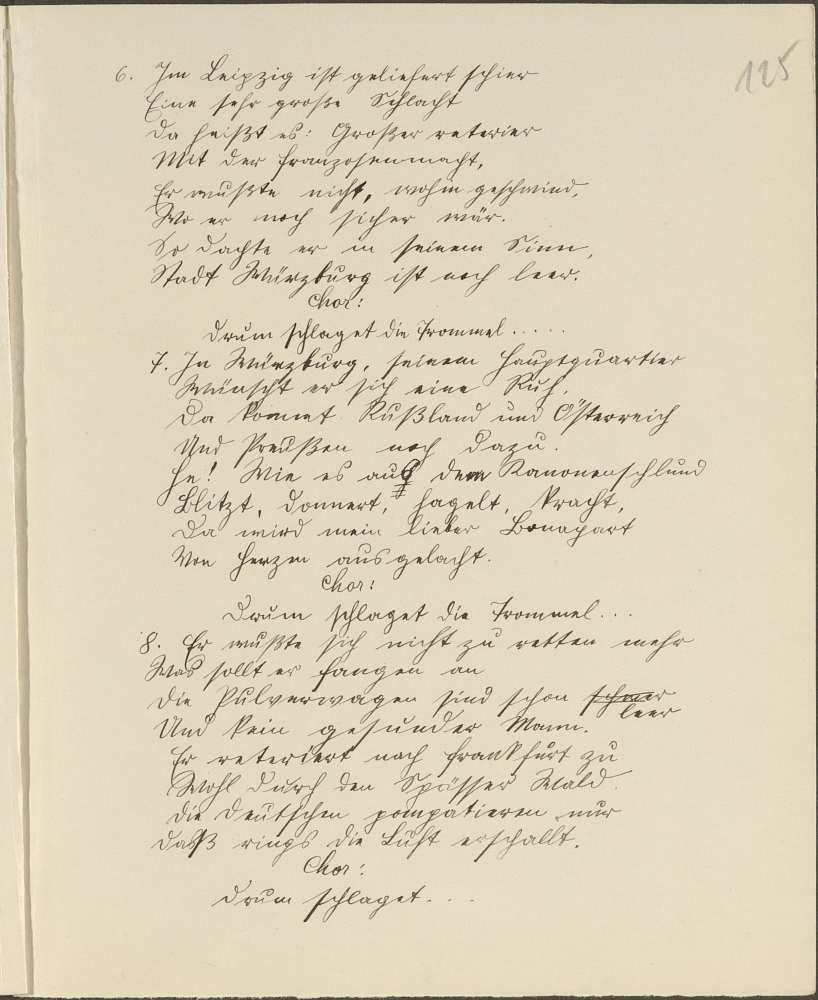 125
6. Im Leipzig ist geliefert schier
Eine sehr große Schlacht
Da heißt es: Großer reterier
Mit der Franzosenmacht,
Er wußte nicht, wohin geschwind,
Wo er noch sicher wär.
So dachte er in seinem Sinn,
Stadt Würzburg ist noch leer.
Chor:
Drum schlaget die Trommel.....
7. In Würzburg, seinem Hauptquartier
Wünscht er sich eine Ruh,
Da kommt Rußland und Österreich
Und Preußen noch dazu.
He! Wie es aus dem Kanonenschlund
Blitzt, donnert, hagelt, kracht,
Da wird mein lieber Bonapart
Von Herzen ausgelacht.
Chor:
Drum schlaget die Trommel...
8. Er wußte sich nicht zu retten mehr
Was sollt er fangen an
Die Pulverwagen sind schon schwer
leer
Und kein gesunder Mann.
Er reteriert nach Frankfurt zu
Wohl durch den Spässer Wald.
Die Deutschen pompatieren nur
Daß rings die Luft erschallt.
Chor:
Drum schlaget...